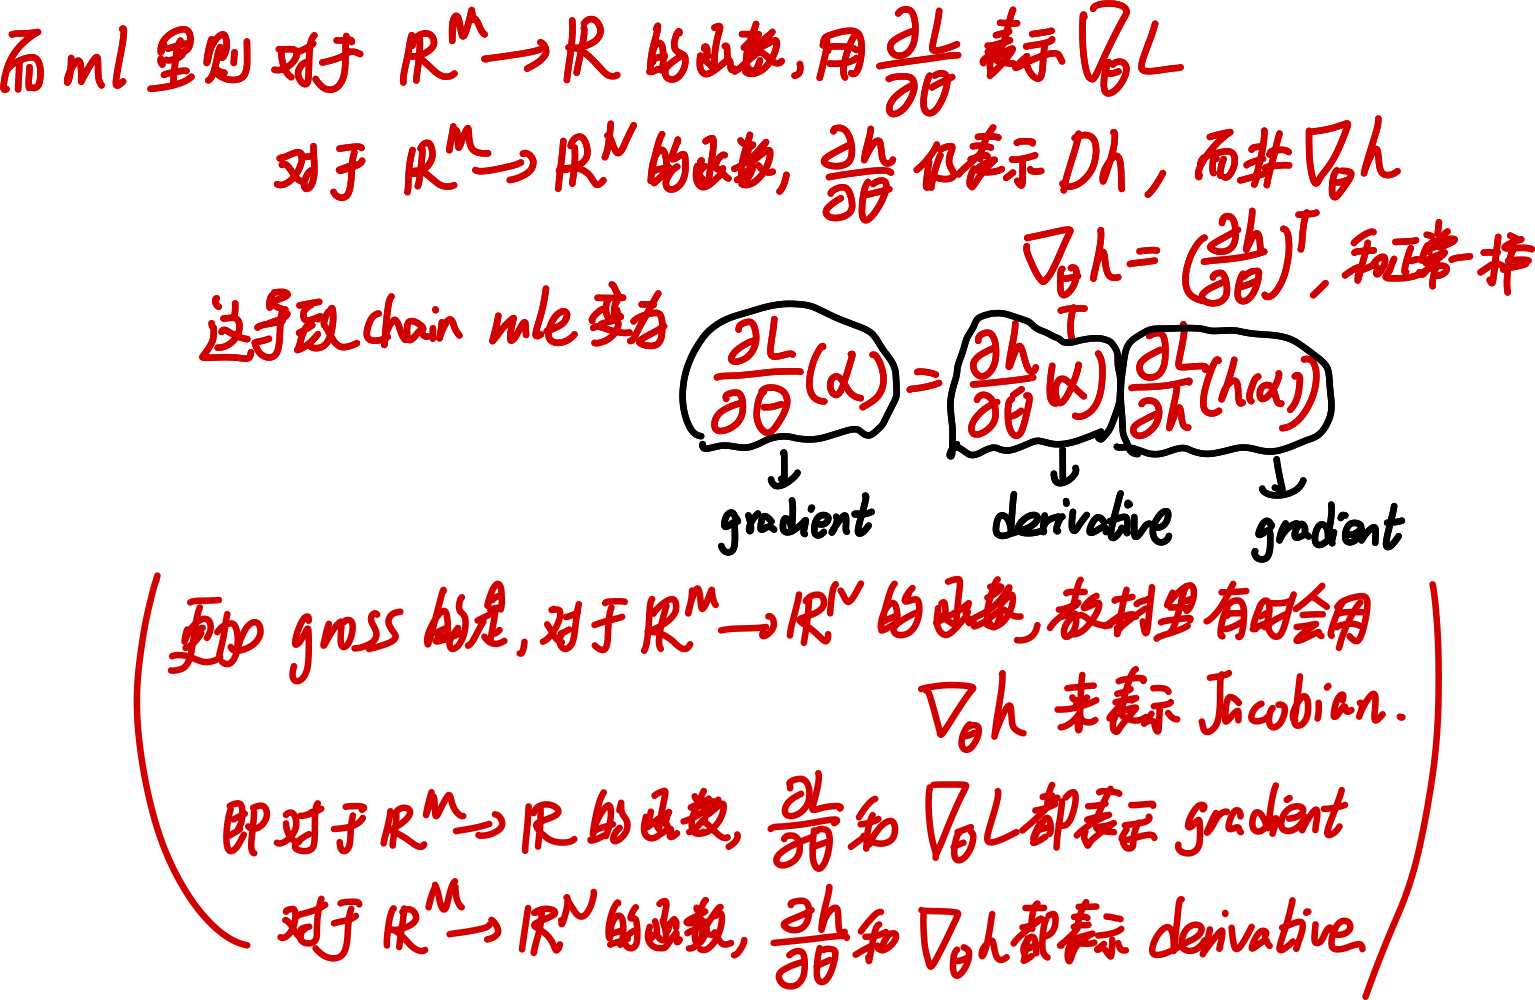 而 ml 里则 对于 ℝ^M → ℝ 的函数, 用 ∂L/∂θ 表示 ∇_θ L
对于 ℝ^M → ℝ^N 的函数, ∂h/∂θ 仍表示 Dh, 而非 ∇_θ h
∇_θ h = (∂h/∂θ)^T, 和正常一样
这导致 chain rule 变为
∂L/∂θ (α) = ∂h/∂θ^T (α) ∂L/∂h (h(α))
gradient derivative gradient
更加 gross 的是, 对于 ℝ^M → ℝ^N 的函数, 教材里有时会用
∇_θ h 来表示 Jacobian.
即对于 ℝ^M → ℝ 的函数, ∂L/∂θ 和 ∇_θ L 都表示 gradient
对于 ℝ^M → ℝ^N 的函数, ∂h/∂θ 和 ∇_θ h 都表示 derivative